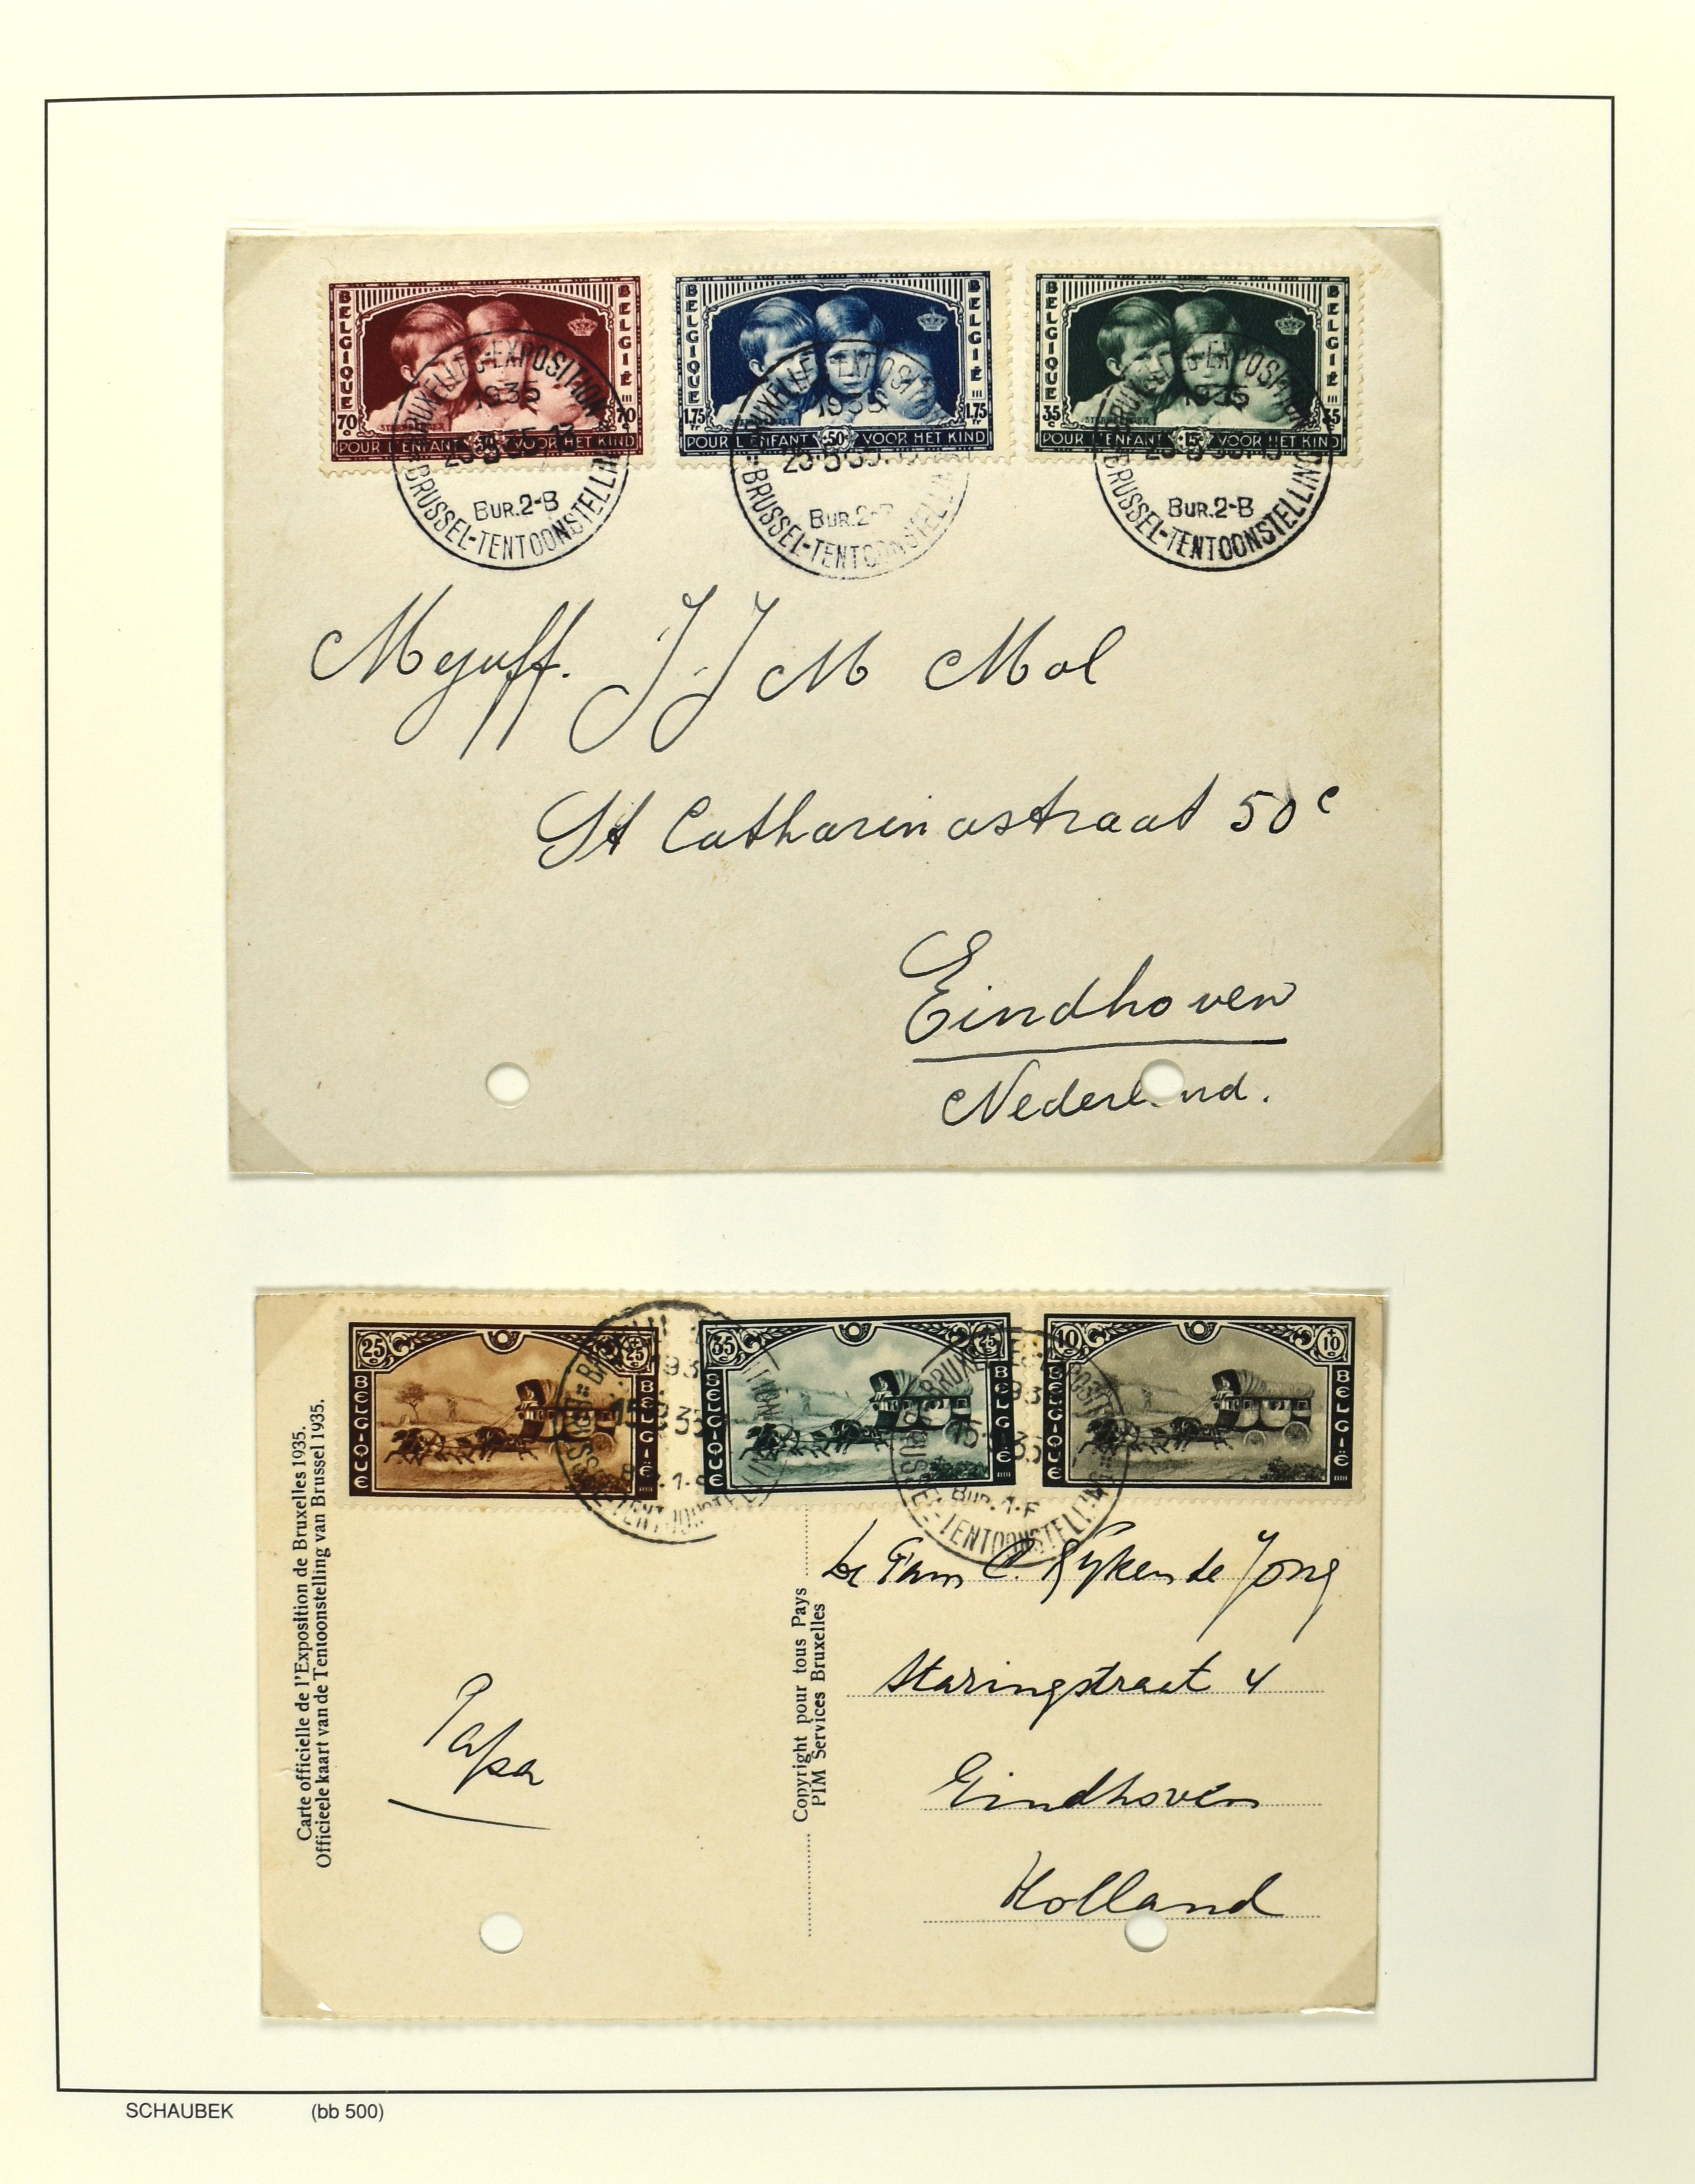 BELGIQUE
BELGIË
70
c
70
c
POUR L'ENFANT
VOOR HET KIND
BELGIQUE
BELGIË
1.75
Fr
1.75
Fr
POUR L'ENFANT +50 VOOR HET KIND
BELGIQUE
BELGIË
35
c
35
POUR L'ENFANT +15 VOOR HET KIND
BRUXELLES-EXPOSITION
1935
BUR.2-B
BRUSSEL-TENTOONSTELLING
BRUXELLES-EXPOSITION
1935
BUR.2-B
BRUSSEL-TENTOONSTELLING
BRUXELLES-EXPOSITION
1935
BUR.2-B
BRUSSEL-TENTOONSTELLING
Mejuff. J. J M Mol
St Catharinastraat 50c
Eindhoven
Nederland.
25
c
+25
c
BELGIQUE
BELGIË
35
c
+25
c
BELGIQUE
BELGIË
10
c
+10
c
BELGIQUE
BELGIË
BRUSSEL-TENTOONSTELLING
BRUXELLES-EXPOSITION
BUR.1-F
BRUSSEL-TENTOONSTELLING
Carte officielle de l'Exposition de Bruxelles 1935.
Officieele kaart van de Tentoonstelling van Brussel 1935.
Copyright pour tous Pays
PIM Services Bruxelles
Fam C. Rijken de Jong
Staringstraat 4
Eindhoven
Holland
Papa
SCHAUBEK (bb 500)